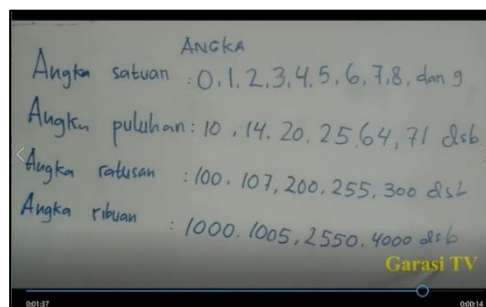 ANGKA
Angka satuan : 0.1.2.3.4.5.6.7.8. dan 9
Angka puluhan : 10 . 14. 20. 25.64, 71 dsb
Angka ratusan : 100. 107, 200. 255. 300 dsb
Angka ribuan : 1000. 1005, 2550. 4000 dsb
Garasi TV
0:01:37 0:00:14